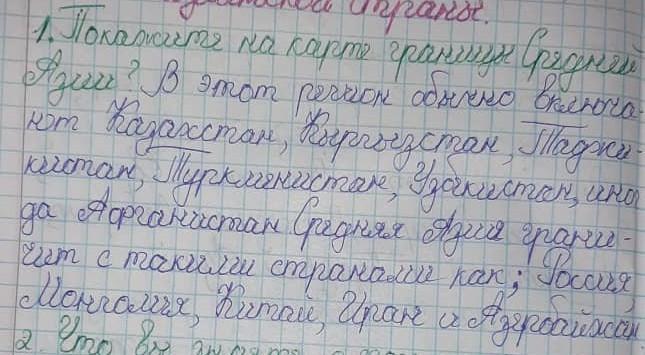 страны.
1. Покажите на карте границы Средней
Азии? В этот регион обычно включа-
ют Казахстан, Кыргызстан, Таджи-
кистан, Туркминистан, Узбекистан, ино
да Афганистан Средняя Азия грани-
чит с такими странами как; Россия,
Монголия, Китай, Иран и Азербайжан
2. Что вы